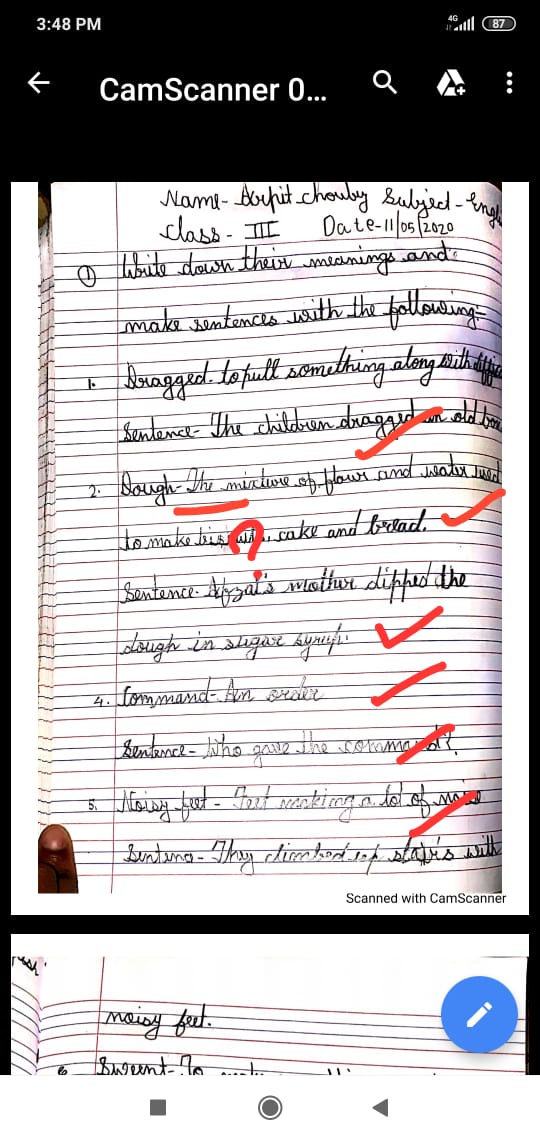 3:48 PM
4G
87
CamScanner 0...
Name- Arpit chouby Subject - Engl
class - III Date-11/05/2020
① Write down their meanings and
make sentences with the following:-
1. Dragged- to pull something along with
Sentence- The children dragged an old box
2. Dough- The mixture of flour and water used
to make cake and bread.
?
Sentence- Afzal's mother dipped the
dough in sugar syrup.
4. Command- An order
Sentence- Who gave the command?
5. Noisy feet - Feet making a lot of noise
Sentenc- They climbed up stairs with
Scanned with CamScanner
noisy feet.